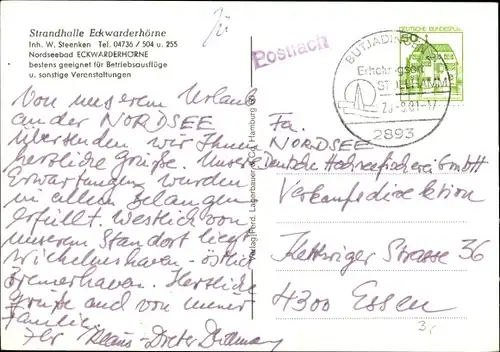 Strandhalle Eckwarderhörne
Inh. W. Steenken Tel. 04736 / 504 u. 255
Nordseebad ECKWARDERHÖRNE
bestens geeignet für Betriebsausflüge
u. sonstige Veranstaltungen
Postfach
DEUTSCHE BUNDESPOST
50
BUTJADINGEN
Erholungsort
STOLLHAMM
2893
Von unserem Urlaub
an der NORDSEE
übersenden wir Ihnen
herzliche Grüße. Unsere
Erwartungen wurden
in allen Belangen
erfüllt. Westlich von
unserem Standort liegt
Wilhelmshaven - östlich
Bremerhaven. Herzliche
Grüße auch von meiner
Familie.
Ihr Klaus-Dieter
Verlag Ferd. Lagerbauer Hamburg
Fa.
NORDSEE
Deutsche Hochseefischerei GmbH
Verkaufsdirektion
Kettwiger Strasse 36
4300 Essen